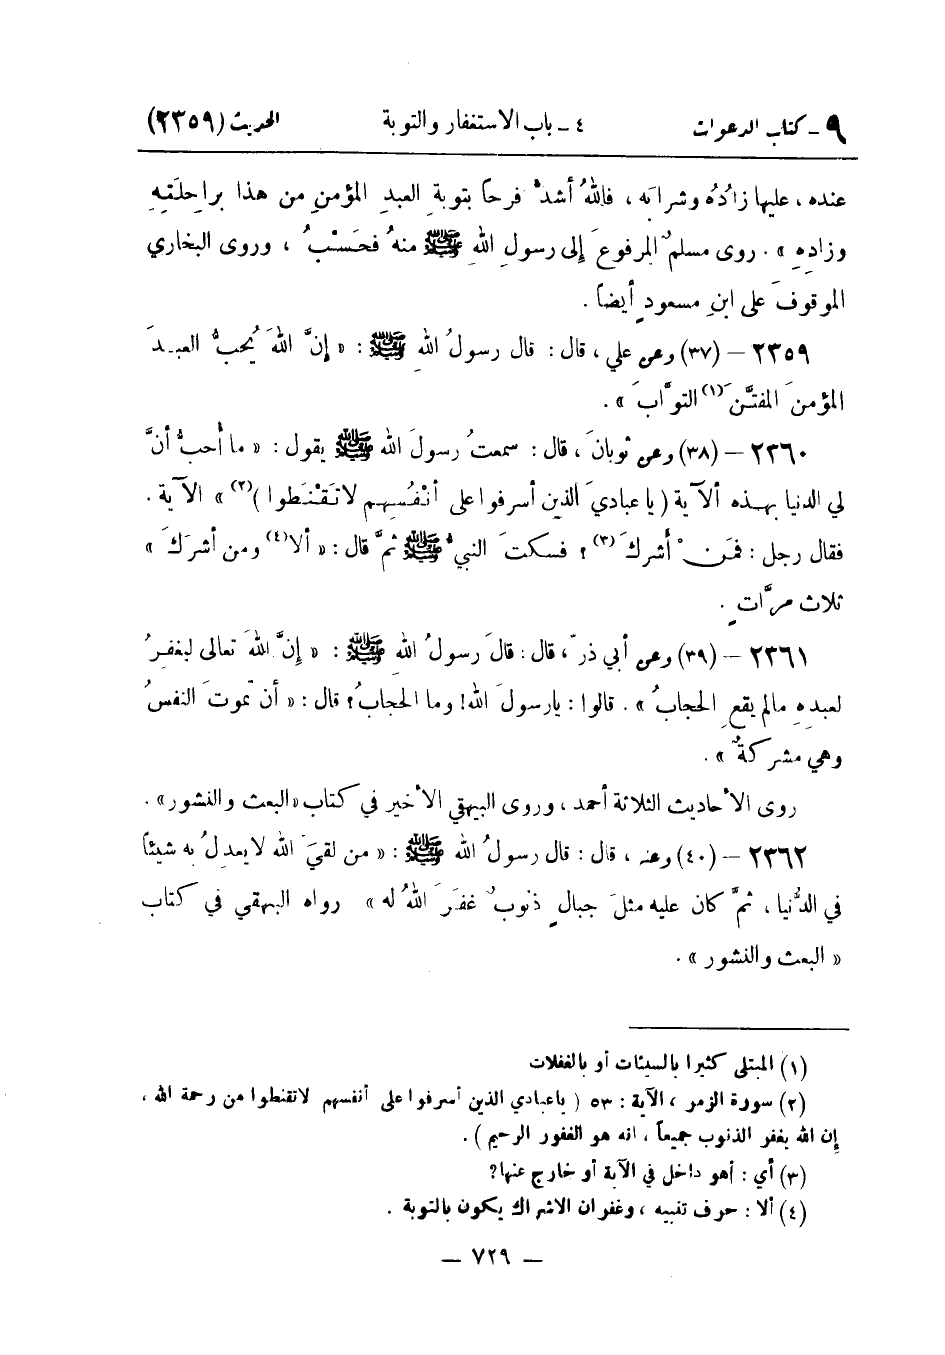 ٩ ـ كتاب الدعوات ٤ ـ باب الاستغفار والتوبة الحديث (٢٣٥٩)
عنده ، عليها زادُهُ وشرابُه ، فاللهُ أشدُّ فرحاً بتوبةِ العبدِ المؤمنِ من هذا براحلَتِهِ
وزادِهِ » . روى مسلمٌ المرفوعَ إلى رسولِ اللهِ ﷺ منهُ فحَسْبُ ، وروى البخاري
الموقوفَ على ابنِ مسعودٍ أيضاً .
٢٣٥٩ – (٣٧) وعن علي ، قال : قال رسولُ اللهِ ﷺ : « إنَّ اللهَ يُحبُّ العبدَ
المؤمنَ المفتَّنَ (١) التوَّابَ » .
٢٣٦٠ – (٣٨) وعن ثوبانَ ، قال : سمعتُ رسولَ الله ﷺ يقول : « ما أُحبُّ أنَّ
لي الدنيا بهذه الآية ( يا عباديَ الذين أسرفوا على أنْفُسِهِم لا تَقْنَطوا ) (٢) » الآية .
فقال رجل : فمَنْ أشركَ (٣) ؟ فسكتَ النبيُّ ﷺ ثمَّ قال : « ألا (٤) ومن أشركَ »
ثلاث مرَّاتٍ .
٢٣٦١ – (٣٩) وعن أبي ذرّ ، قال : قالَ رسولُ اللهِ ﷺ : « إنَّ اللهَ تعالى ليغفِرُ
لعبدِهِ مالم يقعِ الحجابُ » . قالوا : يارسولَ الله! وما الحجابُ؟ قال : « أن تموتَ النفسُ
وهي مشركةٌ » .
روى الأحاديث الثلاثة أحمد ، وروى البيهقي الأخير في كتاب «البعث والنشور» .
٢٣٦٢ – (٤٠) وعنه ، قال : قال رسولُ الله ﷺ : « من لقيَ الله لا يعدلُ به شيئاً
في الدُّنيا ، ثمَّ كان عليه مثلَ جبالٍ ذنوبٌ غفَرَ اللهُ له » رواه البيهقي في كتاب
« البعث والنشور » .
(١) المبتلى كثيرا بالسيئات أو بالغفلات
(٢) سورة الزمر ، الآية : ٥٣ ( ياعبادي الذين أسرفوا على أنفسهم لا تقنطوا من رحمة الله ،
إن الله يغفر الذنوب جميعاً ، انه هو الغفور الرحيم ) .
(٣) أي : أهو داخل في الآية أو خارج عنها؟
(٤) ألا : حرف تنبيه ، وغفران الاشراك يكون بالتوبة .
— ٧٢٩ —